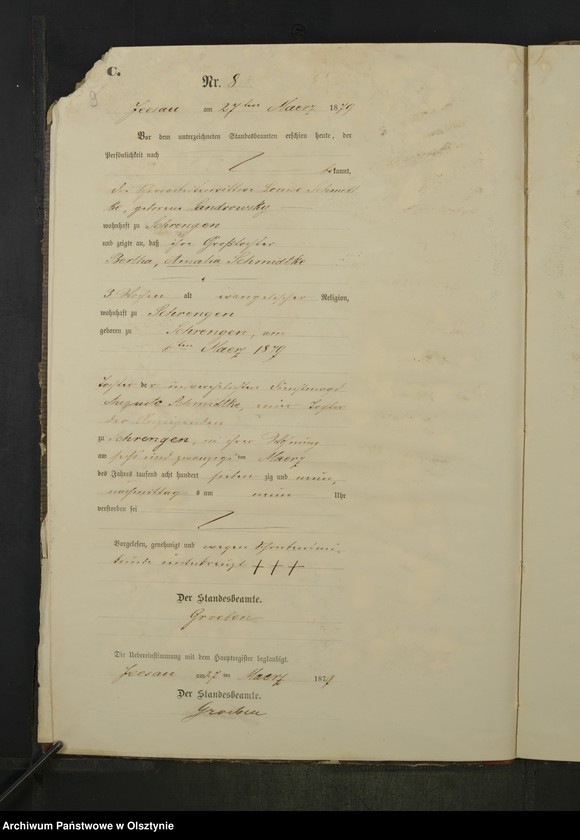 C.
9
Nr. 8
Jeesau am 27ten Maerz 1879
Vor dem unterzeichneten Standesbeamten erschien heute, der
Persönlichkeit nach
bekannt,
die Schmidt
ke, geborene
wohnhaft zu Schrengen
und zeigte an, daß ihre Großtochter
Bertha, Amalia Schmidtke
3 Wochen alt evangelischer Religion,
wohnhaft zu Schrengen
geboren zu Schrengen, am
ten Maerz 1879
Tochter der unverehelichten Dienstmagd
Auguste Schmidtke, einer Tochter
der Anzeigenden
zu Schrengen, in ihrer Wohnung
am sechs und zwanzigsten Maerz
des Jahres tausend acht hundert sieben zig und neun,
nachmittag s um neun Uhr
verstorben sei
Vorgelesen, genehmigt und wegen Schreibensun-
kunde unterkreuzt + + +
Der Standesbeamte.
Groeben
Die Uebereinstimmung mit dem Hauptregister beglaubigt.
Jeesau am 27 ten Maerz 1879
Der Standesbeamte.
Groeben
Archiwum Państwowe w Olsztynie